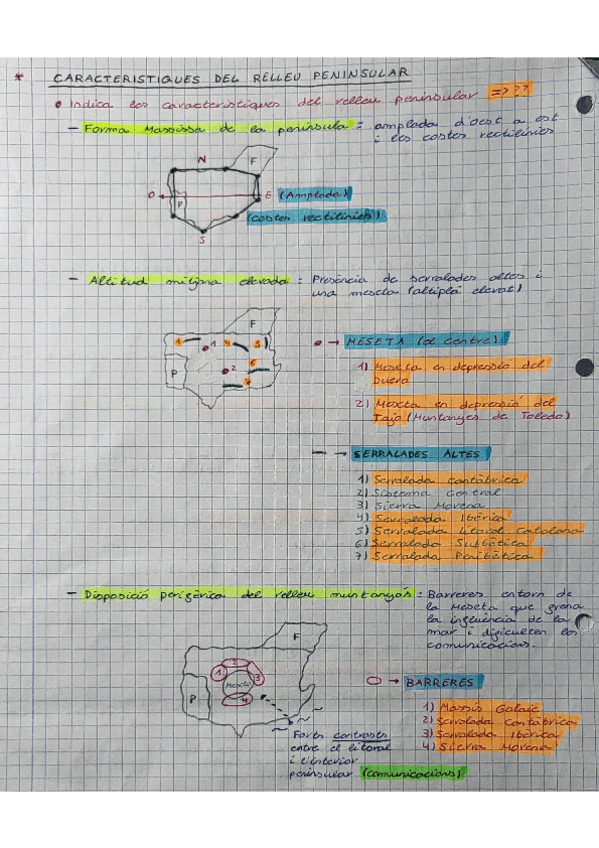 * CARACTERISTIQUES DEL RELLEU PENINSULAR
• Indica les caracteristiques del relleu peninsular => ??
- Forma Massissa de la península = amplada d'oest a est
i les costes rectilínies
N
F
O
E (Amplada)
P
(costes rectilínies)
S
- Altitud mitjana elevada : Presència de serralades altes i
una meseta (altiplà elevat)
F
1 1 4 5
P 2 6
7
• → MESETA (al centre)
1) Meseta en depressió del
Duero
2) Meseta en depressió del
Tajo (Muntanyes de Toledo)
— → SERRALADES ALTES
1) Serralada cantàbrica
2) Sistema Central
3) Sierra Morena
4) Serralada Ibèrica
5) Serralada Litoral Catalana
6) Serralada Subbètica
7) Serralada Penibètica
- Disposició perifèrica del relleu muntanyós : Barreres entorn de
la Meseta que frena
la influència de la
mar i dificulten les
comunicacions.
F
2
1 3
Meseta
P 4
→ BARRERES
1) Massís Galaic
2) Serralada Cantàbrica
3) Serralada Ibèrica
4) Sierra Morena
Forts contrastes
entre el litoral
i l'interior
peninsular (comunicacions)